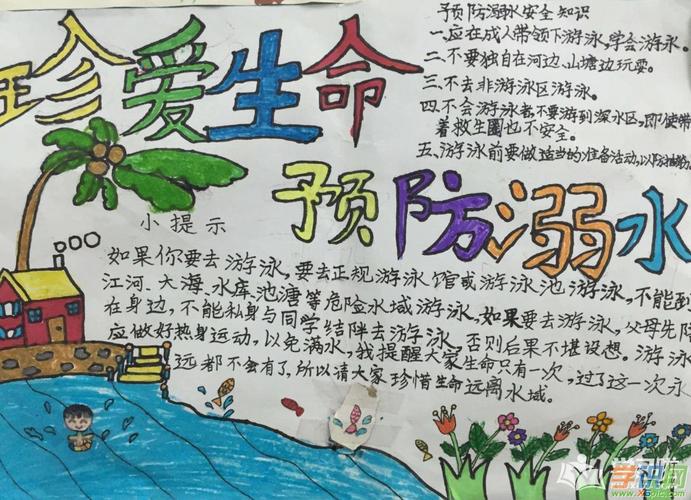 珍爱生命
预防溺水安全知识
一、应在成人带领下游泳,学会游泳。
二、不要独自在河边、山塘边玩耍。
三、不去非游泳区游泳。
四、不会游泳者,都不要游到深水区,即使带
着救生圈也不安全。
五、游泳前要做适当的准备活动,以防抽筋
预防溺水
小提示
如果你要去游泳,要去正规游泳馆或游泳池游泳,不能到
江河、大海、水库池塘等危险水域游泳。如果要去游泳,父母先陪
在身边,不能私身与同学结阵去游泳,否则后果不堪设想。游泳
应做好热身运动,以免满水,我提醒大家生命只有一次,过了这一次永
远都不会有了,所以请大家珍惜生命远离水域。